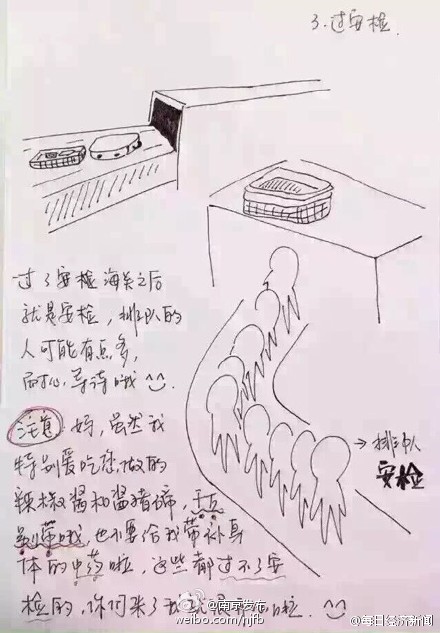 3.过安检.
过了安检海关之后
就是安检，排队的
人可能有点多，
耐心等待哦
注意：妈，虽然我
特别爱吃您做的
辣椒酱和酱猪蹄，千万
别带哦，也不要给我带补身
体的中药啦，这些都过不了安
检的，你们来了我就很啦.
→排队人
安检
@南京发布
weibo.com/njfb
@每日经济新闻